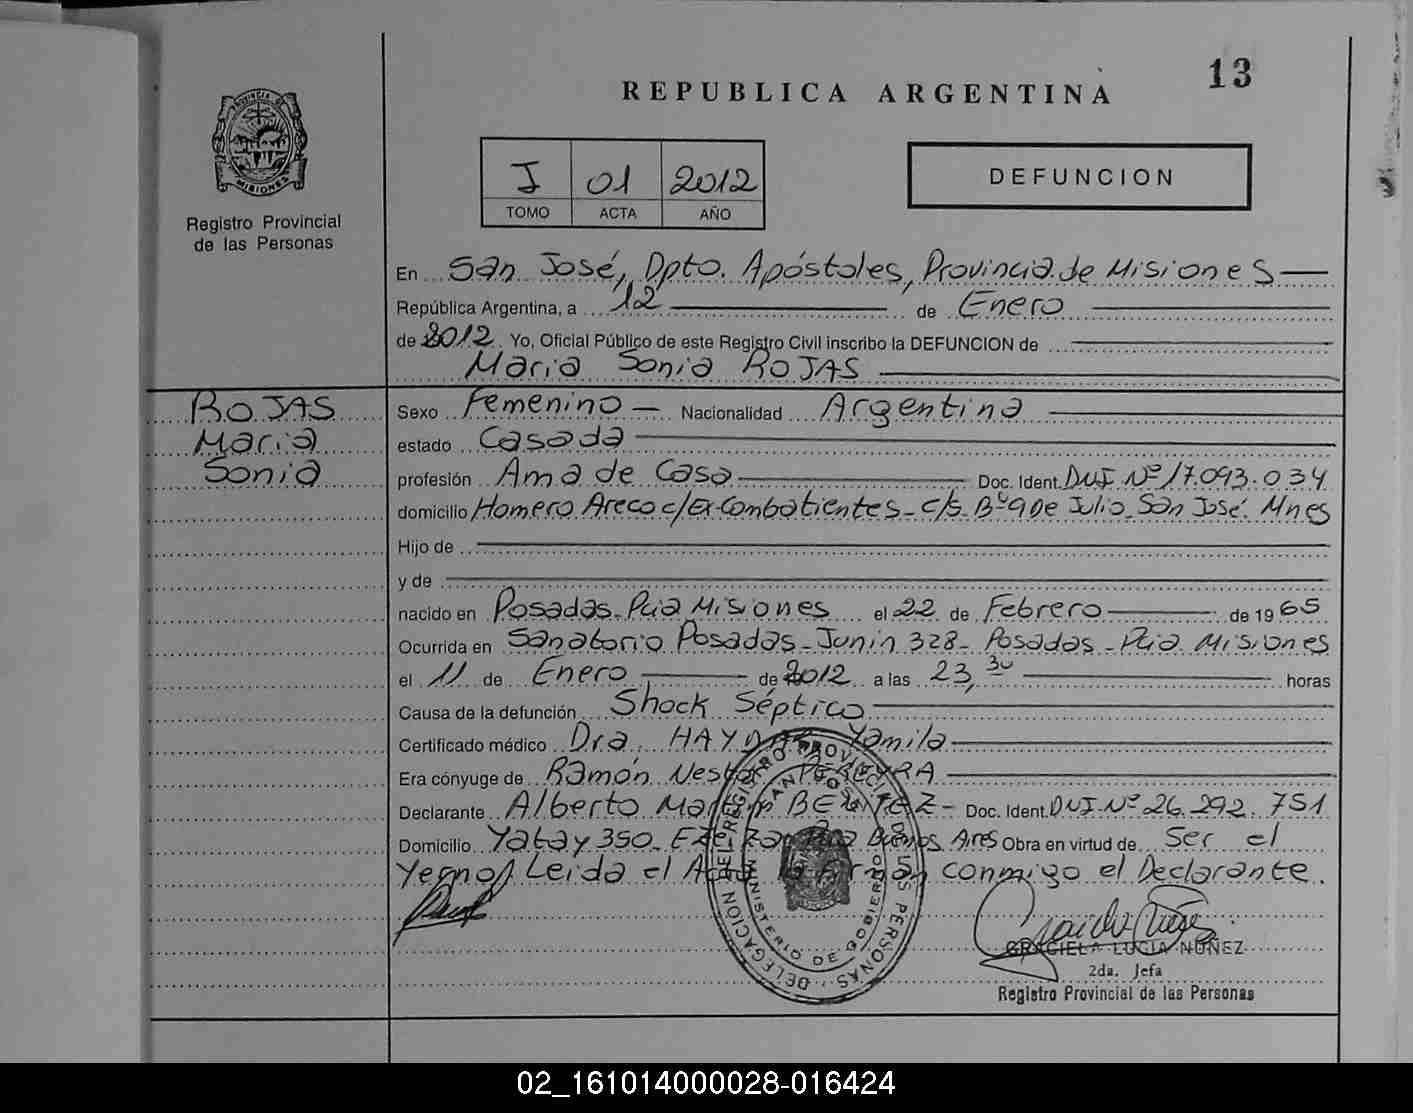 13
REPUBLICA ARGENTINA
PROVINCIA DE MISIONES
Registro Provincial
de las Personas
I 01 2012
TOMO ACTA AÑO
DEFUNCION
En San José, Dpto. Apóstoles, Provincia de Misiones
República Argentina, a 12 de Enero
de 2012 Yo, Oficial Público de este Registro Civil inscribo la DEFUNCION de
Maria Sonia ROJAS
ROJAS
Maria
Sonia
Sexo Femenino Nacionalidad Argentina
estado Casada
profesión Ama de Casa Doc. Ident. DNI Nº 17.093.034
domicilio Homero Areco c/Ex-Combatientes - c/s Bº 9 De Julio - San José. Mnes
Hijo de
y de
nacido en Posadas - Pcia Misiones el 22 de Febrero de 1965
Ocurrida en Sanatorio Posadas - Junin 328 - Posadas - Pcia. Misiones
el 11 de Enero de 2012 a las 23,30 horas
Causa de la defunción Shock Séptico
Certificado médico Dra. Yamila
Era cónyuge de Ramón Nestor PEREYRA
Declarante Alberto Martin BENITEZ - Doc. Ident. DNI Nº 26.292.751
Domicilio Yatay 350 - Buenos Aires Obra en virtud de Ser el
Yerno Leida el Acta la Firman conmigo el Declarante.
DELEGACION DEL REGISTRO PROVINCIAL DE LAS PERSONAS
SAN JOSE
MINISTERIO DE GOBIERNO
GRACIELA LUCIA NUÑEZ
2da. Jefa
Registro Provincial de las Personas
02_161014000028-016424